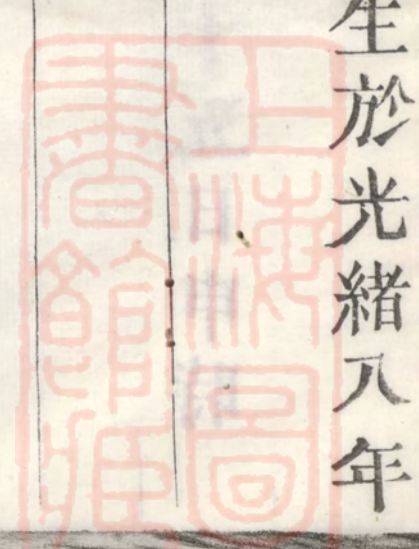 生於光緒八年
上海圖
書館藏